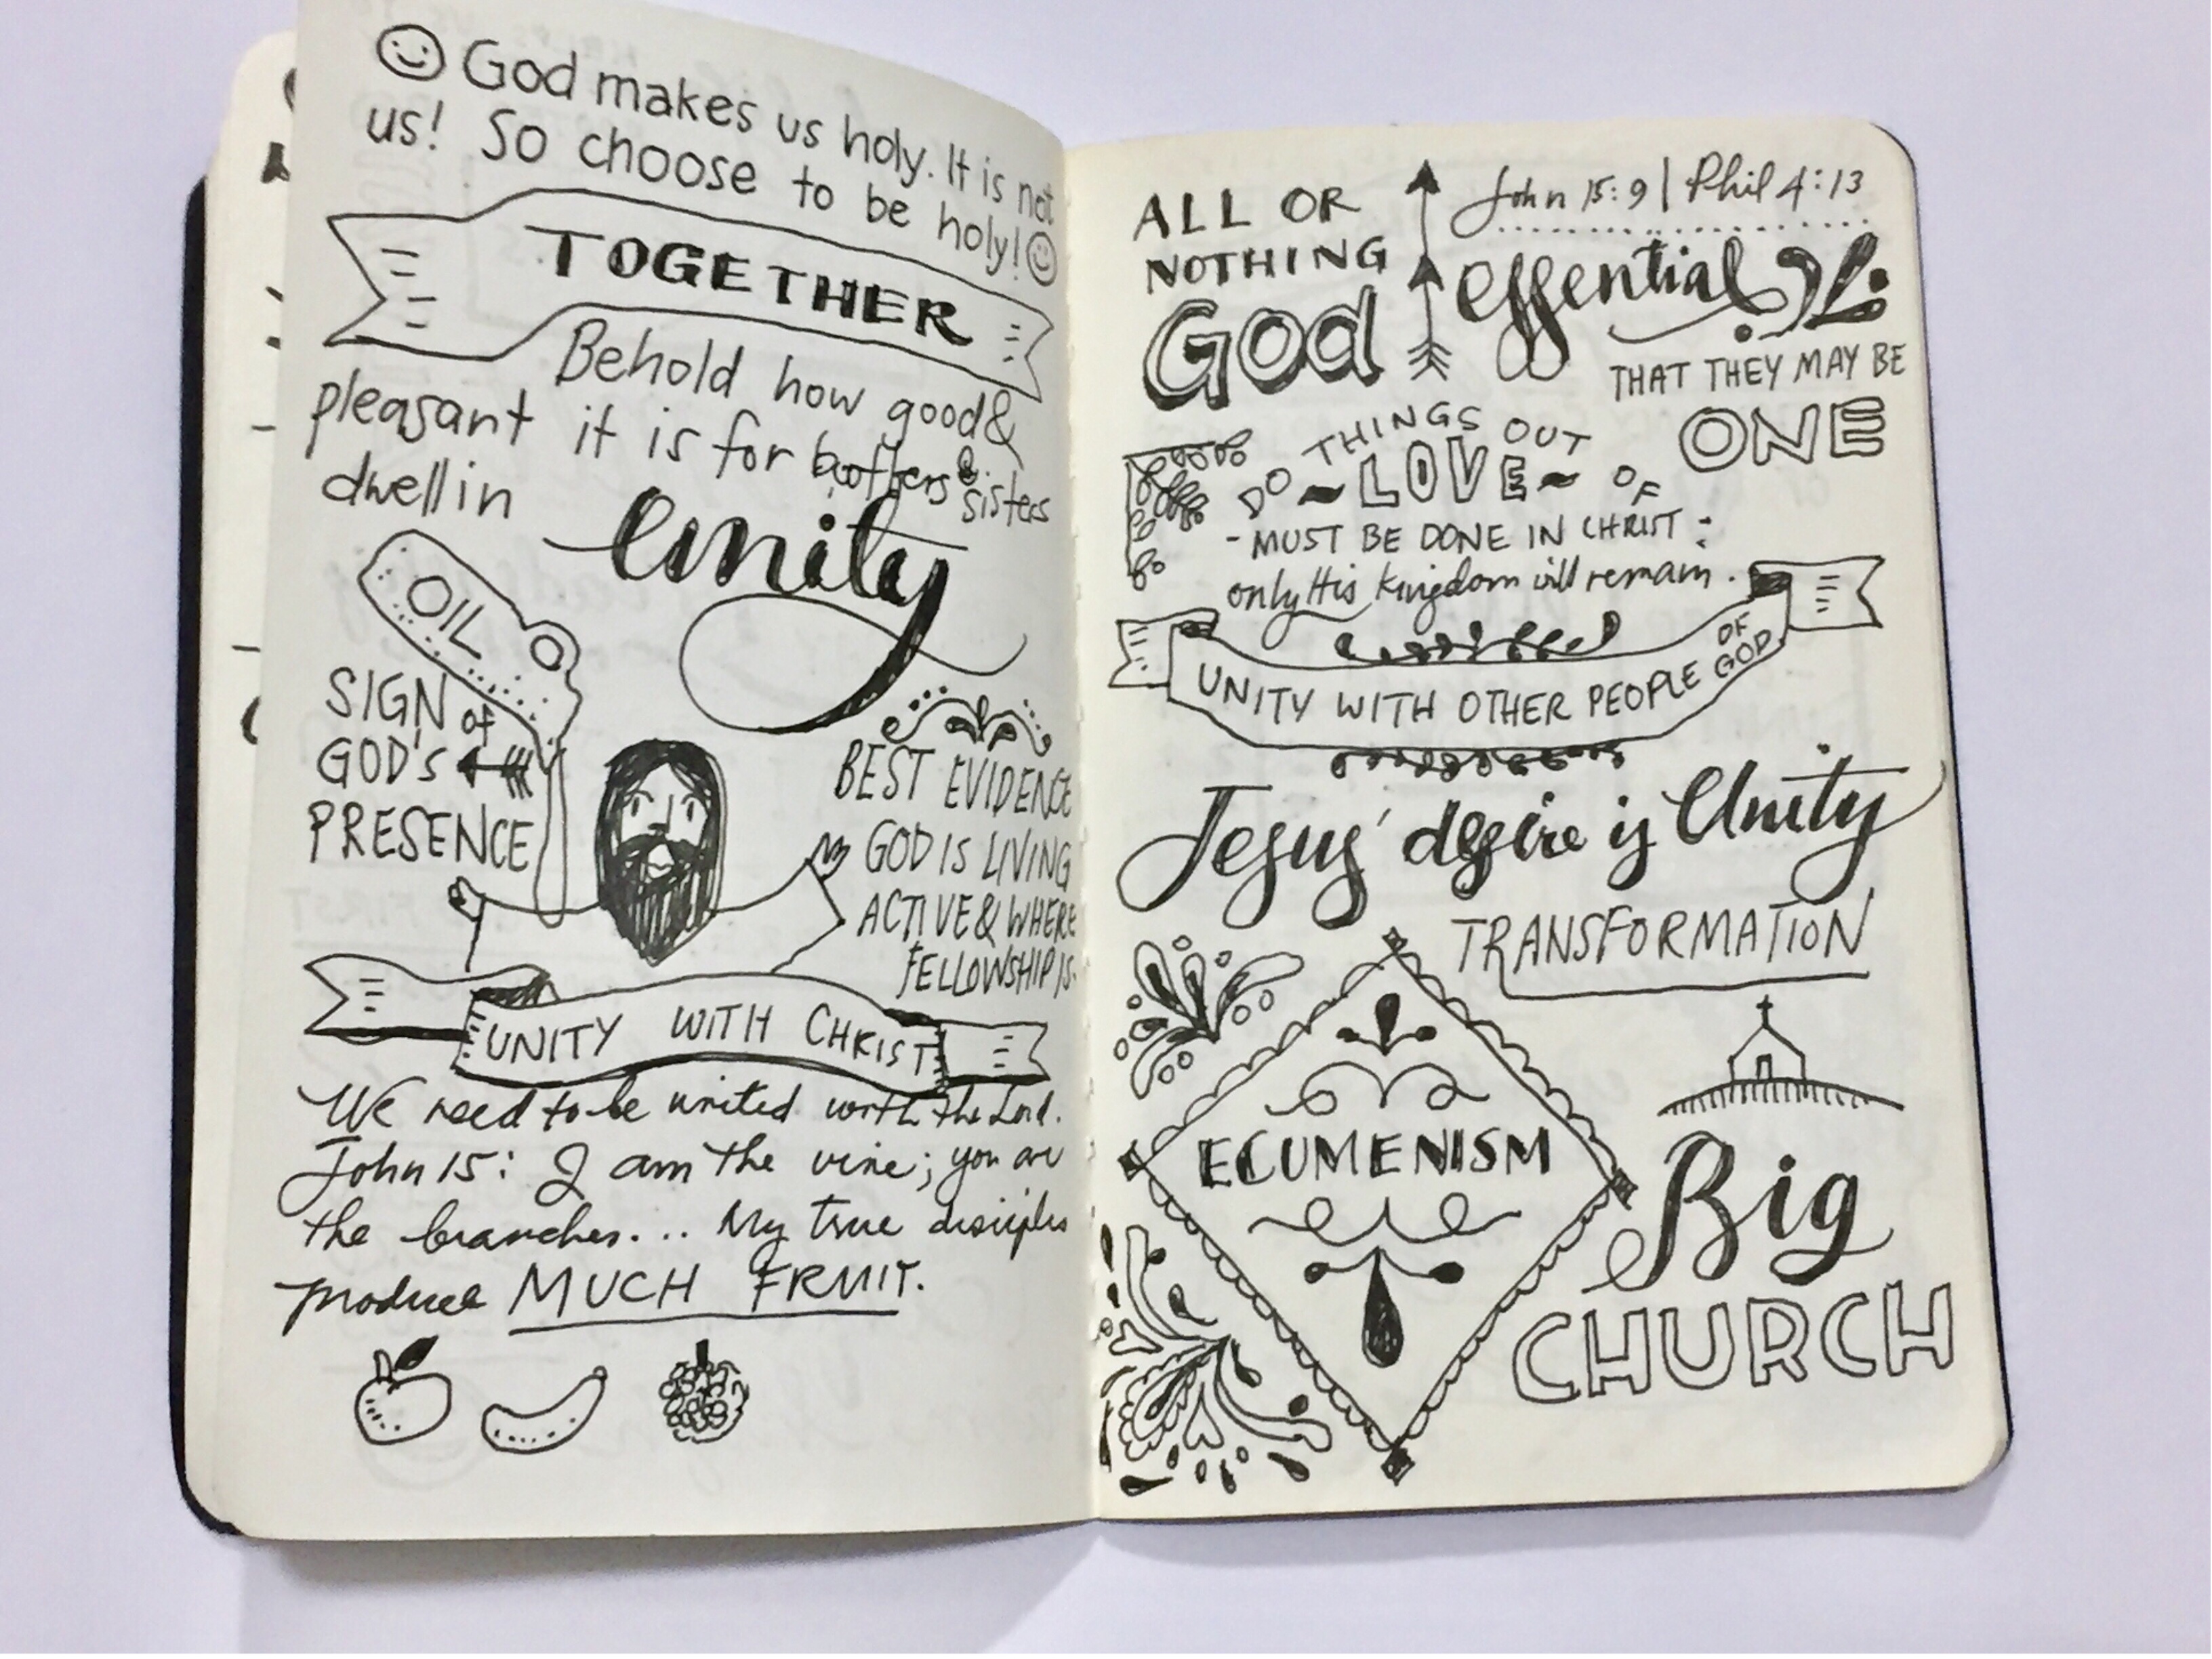 God makes us holy. It is not
us! So choose to be holy!
TOGETHER
Behold how good &
pleasant it is for brothers & sisters
dwell in
Unity
OIL
SIGN of
GOD'S
PRESENCE
BEST EVIDENCE
GOD IS LIVING
ACTIVE & WHERE
FELLOWSHIP IS.
UNITY WITH CHRIST
We need to be united with the Lord.
John 15: I am the vine; you are
the branches... My true disciples
produce MUCH FRUIT.
ALL OR
NOTHING
God
John 15:9 | Phil 4:13
essential
THAT THEY MAY BE
ONE
DO THINGS OUT OF
~LOVE~
- MUST BE DONE IN CHRIST:
only His kingdom will remain.
UNITY WITH OTHER PEOPLE OF GOD
Jesus' desire is Unity
TRANSFORMATION
ECUMENISM
Big
CHURCH